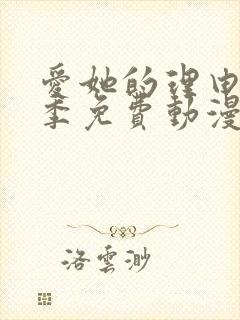 愛她的理由
季免費動漫
洛雲渺